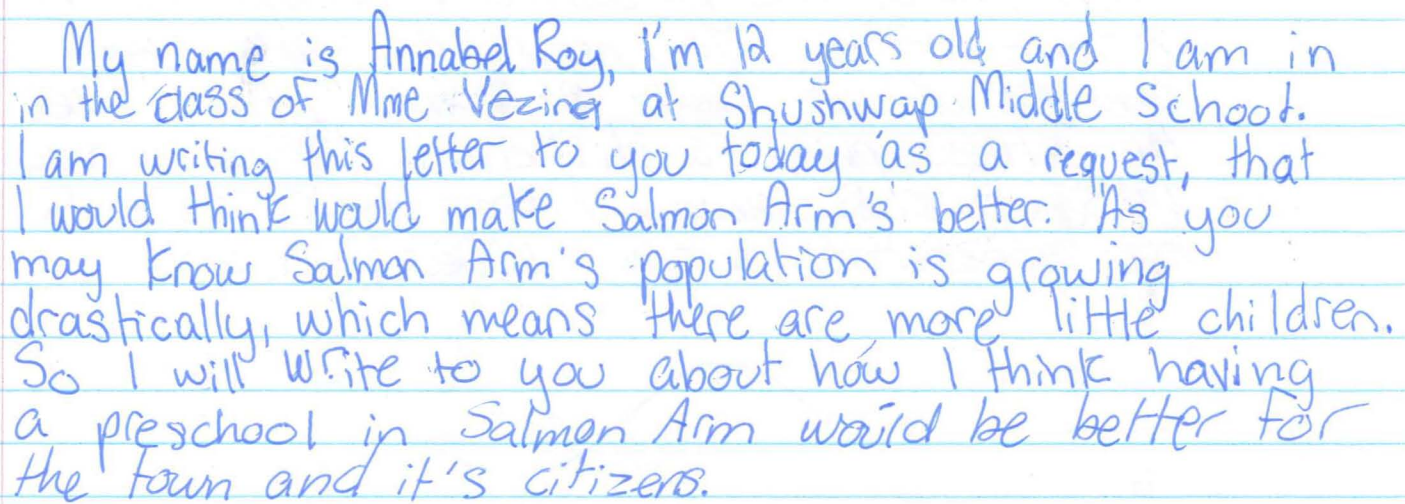 My name is Annabel Roy, I'm 12 years old and I am in
in the class of Mme Vezina at Shushwap Middle School.
I am writing this letter to you today as a request, that
I would think would make Salmon Arm's better. As you
may know Salmon Arm's population is growing
drastically, which means there are more little children.
So I will write to you about how I think having
a preschool in Salmon Arm would be better for
the town and it's citizens.